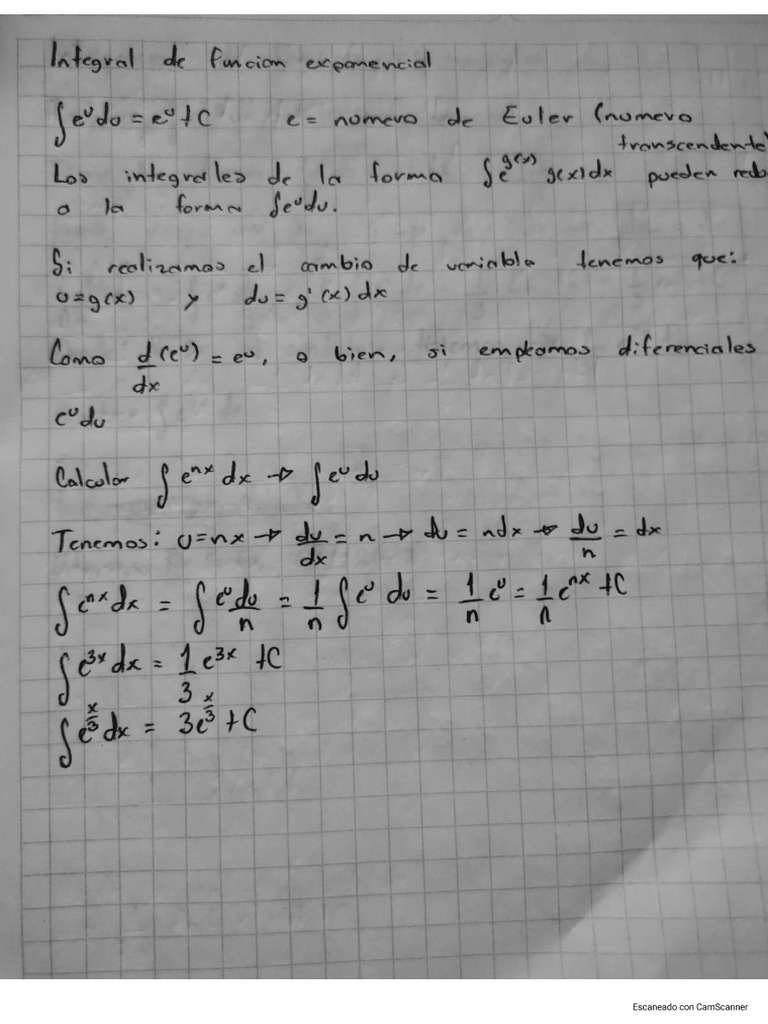 Integral de funcion exponencial
∫e^u du = e^u + C e = numero de Euler (numero
transcendente)
Las integrales de la forma ∫e^{g(x)} g(x)dx pueden redu
a la forma ∫e^u du.
Si realizamos el cambio de variable tenemos que:
u=g(x) y du = g'(x)dx
Como d/dx (e^u) = e^u, o bien, si empleamos diferenciales
e^u du
Calcular ∫e^{nx} dx → ∫e^u du
Tenemos: u=nx → du/dx = n → du = ndx → du/n = dx
∫e^{nx} dx = ∫e^u du/n = 1/n ∫e^u du = 1/n e^u = 1/n e^{nx} + C
∫e^{3x} dx = 1/3 e^{3x} + C
∫e^{x/3} dx = 3e^{x/3} + C
Escaneado con CamScanner